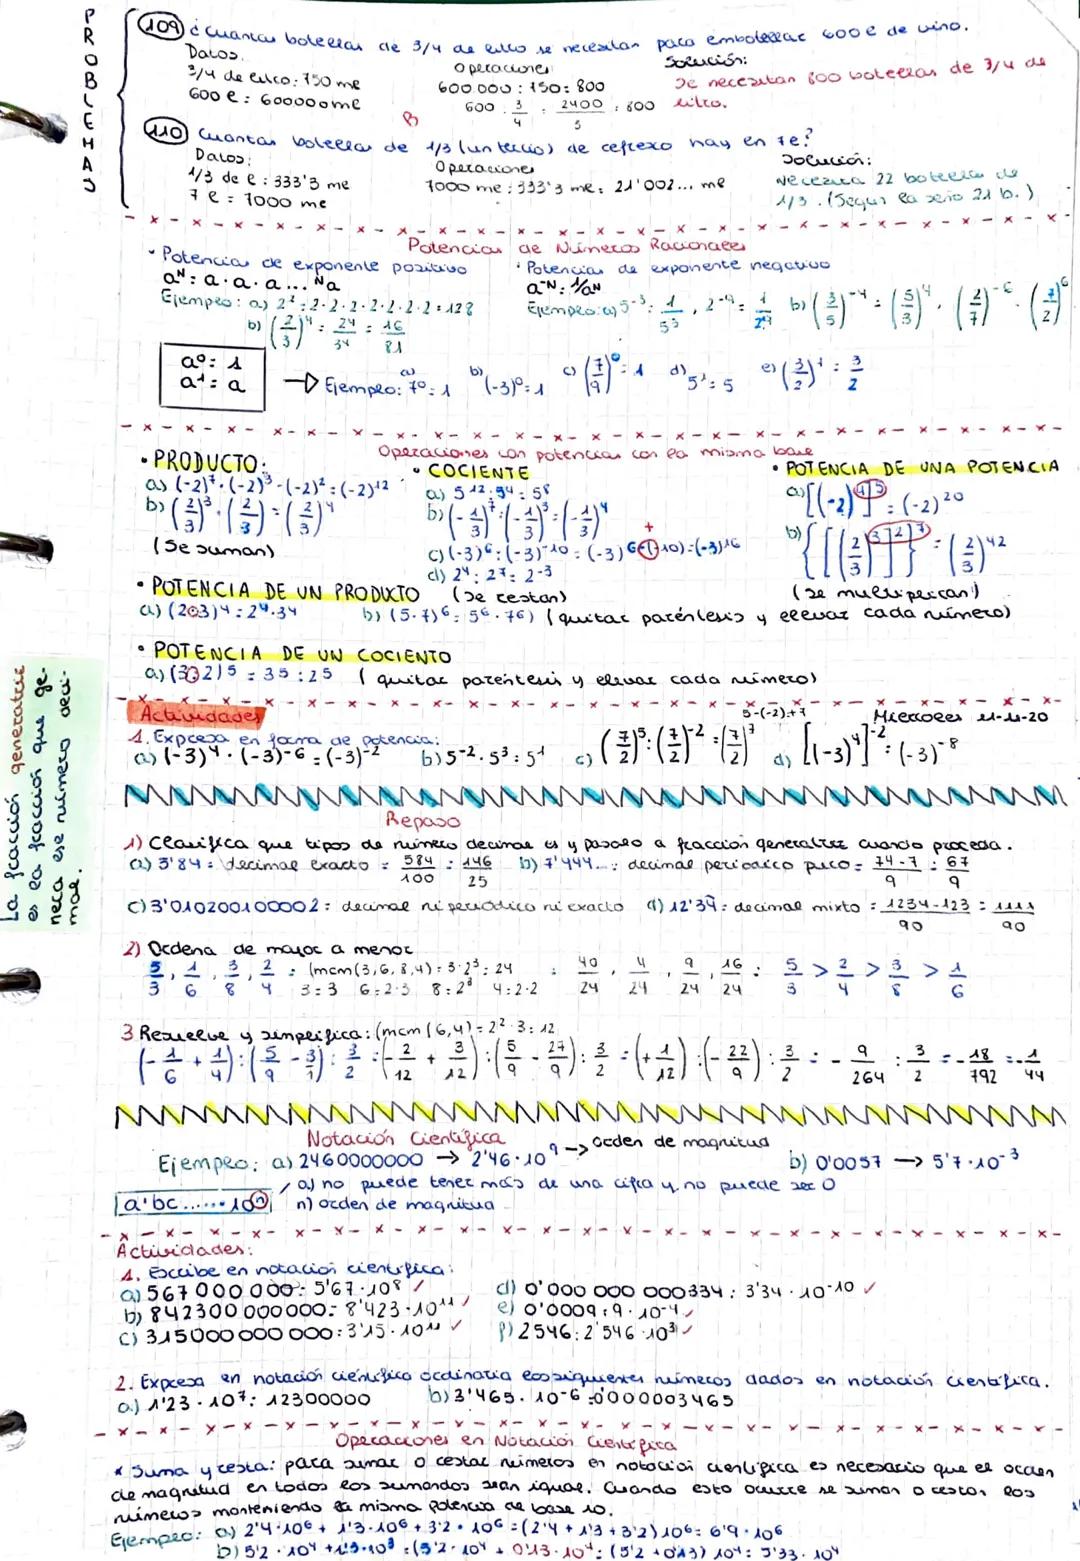 PROBLEMAS
109 ¿Cuantas botellas de 3/4 de litro se necesitan para embotellar 600 l de vino.
Datos.
Operaciones
Solución:
3/4 de litro: 750 ml
600.000 : 750 = 800
Se necesitan 800 botellas de 3/4 de
600 l = 600000 ml
600 : 3/4 = 2400/3 = 800
litro.
110 Cuantas botellas de 1/3 (un tercio) de refresco hay en 7l?
Datos:
Operaciones
Solución:
1/3 de l : 333'3 ml
7000 ml : 333'3 ml = 21'002... ml
Necesita 22 botellas de
7 l = 7000 ml
1/3. (Según la seño 21 b.)
Potencias de Números Racionales
• Potencias de exponente positivo
• Potencias de exponente negativo
aᴺ = a · a · a ... ᴺa
a⁻ᴺ = 1/aᴺ
Ejemplo: a) 2⁷ = 2·2·2·2·2·2·2 = 128
Ejemplo: a) 5⁻³ = 1/5³, 2⁻⁹ = 1/2⁹ b) (3/5)⁻⁴ = (5/3)⁴, (2/7)⁻⁶ = (7/2)⁶
b) (2/3)⁴ = 2⁴/3⁴ = 16/81
a⁰ = 1
a¹ = a
→ Ejemplo: a) 7⁰ = 1 b) (-3)⁰ = 1 c) (7/9)⁰ = 1 d) 5¹ = 5 e) (3/2)¹ = 3/2
Operaciones con potencias con la misma base
• PRODUCTO:
a) (-2)⁷ · (-2)³ · (-2)² = (-2)¹²
b) (2/3)³ · (2/3) = (2/3)⁴
(Se suman)
• COCIENTE
a) 5¹² : 5⁴ = 5⁸
b) (-1/3)⁷ : (-1/3)³ = (-1/3)⁴
c) (-3)⁶ : (-3)⁻¹⁰ = (-3)⁶⁻⁽⁻¹⁰⁾ = (-3)¹⁶
+
d) 2⁴ : 2⁷ = 2⁻³
(Se restan)
• POTENCIA DE UNA POTENCIA
a) [(-2)⁴]⁵ = (-2)²⁰
b) {[[(2/3)]³]²}⁷ = (2/3)⁴²
(se multiplican)
• POTENCIA DE UN PRODUCTO
a) (2·3)⁴ = 2⁴·3⁴ b) (5·7)⁶ = 5⁶·7⁶) (quitar paréntesis y elevar cada número)
• POTENCIA DE UN COCIENTO
a) (3:2)5 = 35 : 25 (quitar paréntesis y elevar cada número)
La fracción generatriz
es la fracción que ge-
nera ese número deci-
mal.
Actividades
Miercoles 11-11-20
1. Expresa en forma de potencia:
5-(-2)=+7
a) (-3)⁴ · (-3)⁻⁶ = (-3)⁻² b) 5⁻² · 5³ = 5¹ c) (7/2)⁵ : (7/2)⁻² = (7/2)⁷ d) [(-3)⁴]⁻² = (-3)⁻⁸
Repaso
1) Clasifica que tipos de número decimal es y pasalo a fracción generatriz cuando proceda.
a) 5'84 = decimal exacto = 584/100 = 146/25 b) 7'444... = decimal periodico puro = 74-7/9 = 67/9
c) 3'010200100002 = decimal ni periódico ni exacto d) 12'34 = decimal mixto = 1234-123/90 = 1111/90
2) Ordena de mayor a menor
5/3, 1/6, 3/8, 2/4 = (mcm(3,6,8,4) = 3·2³ = 24 = 40/24, 4/24, 9/24, 16/24 = 5/3 > 2/4 > 3/8 > 1/6
3=3 6=2·3 8=2³ 4=2·2
3 Resuelve y simplifica: (mcm(6,4) = 2²·3 = 12
(-1/6 + 1/4) : (5/9 - 3/1) : 3/2 = (-2/12 + 3/12) : (5/9 - 27/9) : 3/2 = (+1/12) : (-22/9) : 3/2 = -9/264 : 3/2 = -18/792 = -1/44
Notación Científica
Ejemplo: a) 2460000000 → 2'46·10⁹ → orden de magnitud b) 0'0057 → 5'7·10⁻³
a'bc......·10ⁿ
a) no puede tener más de una cifra y no puede ser 0
n) orden de magnitud
Actividades:
1. Escribe en notación científica:
a) 567 000 000 = 5'67·10⁸ ✓ d) 0'000 000 000334 = 3'34·10⁻¹⁰ ✓
b) 842300 000000 = 8'423·10¹¹ ✓ e) 0'0009 = 9·10⁻⁴ ✓
c) 315000000 000 = 3'15·10¹¹ ✓ f) 2546 = 2'546·10³ ✓
2. Expresa en notación científica ordinaria los siguientes números dados en notación científica.
a) 1'23·10⁷ = 12300000 b) 3'465·10⁻⁶ = 0'000003465
Operaciones en Notación Científica
* Suma y resta: para sumar o restar números en notación científica es necesario que el orden
de magnitud en todos los sumandos sean igual. Cuando esto ocurre se suman o restan los
números manteniendo la misma potencia de base 10.
Ejemplo: a) 2'4·10⁶ + 1'3·10⁶ + 3'2·10⁶ = (2'4 + 1'3 + 3'2)10⁶ = 6'9·10⁶
b) 5'2·10⁴ + 1'3·10³ = (5'2·10⁴ + 0'13·10⁴ = (5'2 + 0'13)10⁴ = 5'33·10⁴